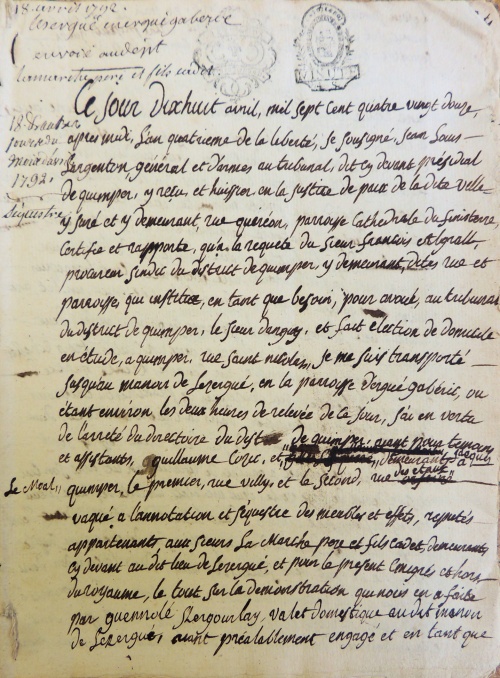 18. avril 1792.
Lesergué en ergué gaberic
envoié au dept
Lamarche pere et fils cadet.
1792.
Séquestre
Ce jour dixhuit avril, mil sept cent quatre vingt douze,
apres midi, L'an quatrieme de la liberté, je soussigné, jean Louis
Largenton, général et d'armes au tribunal, dit cy devant présidial
de quimper, y reçu, et huissier en la justice de paix de la dite ville
y juré et y demeurant, rue quéréon, parroisse Cathédrale du finisterre,
Certifie et rapporte, qu'a la requete du Sieur francois
procureur sindic du district de quimper, y demeurant, dites rue et
parroisse, qui institue, en tant que besoin, pour avoué, au tribunal
du district de quimper, le sieur et fait election de domicile
en étude, a quimper, rue Saint nicolas, je me suis transporté
jusqu'au manoir de Lezergué, en la parroisse d'ergué gabéric, ou
étant environ, les deux heures de relevée de ce jour, j'ai en vertu
de l'arreté du directoire du district de quimper, ayant pour temoins
et assistants, guillaume Cozic, et demeurants a
Le Meal, quimper, le premier, rue villy, et le second, rue
vaqué a l'annotation et séquestre des meubles et effets, reputés
appartenants aux sieurs La Marche pere et fils cadet, demeurants
cy devant au dit lieu de Lezergué, et pour le present émigrés et hors
du royaume, le tout sur la demonstration que nous en a faite
par guennolé Kergourlay, valet domestique au dit manoir
de Lezergué, aiant préalablement engagé et en tant que